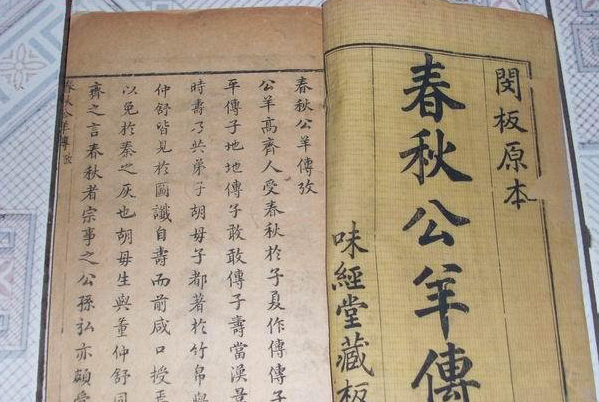 閔板原本
春秋公羊傳
味經堂藏板
春秋公羊傳攷
公羊高齊人受春秋於子夏作傳傳子
平傳子地地傳子敢敢傳子壽當漢景
時壽乃共弟子胡毋子都著於竹帛與
仲舒皆見於圖讖自壽而前咸口授焉
以免於秦之灰也胡毋生與董仲舒同
齊之言春秋者宗事之公孫弘亦頗受
春秋公羊傳攷